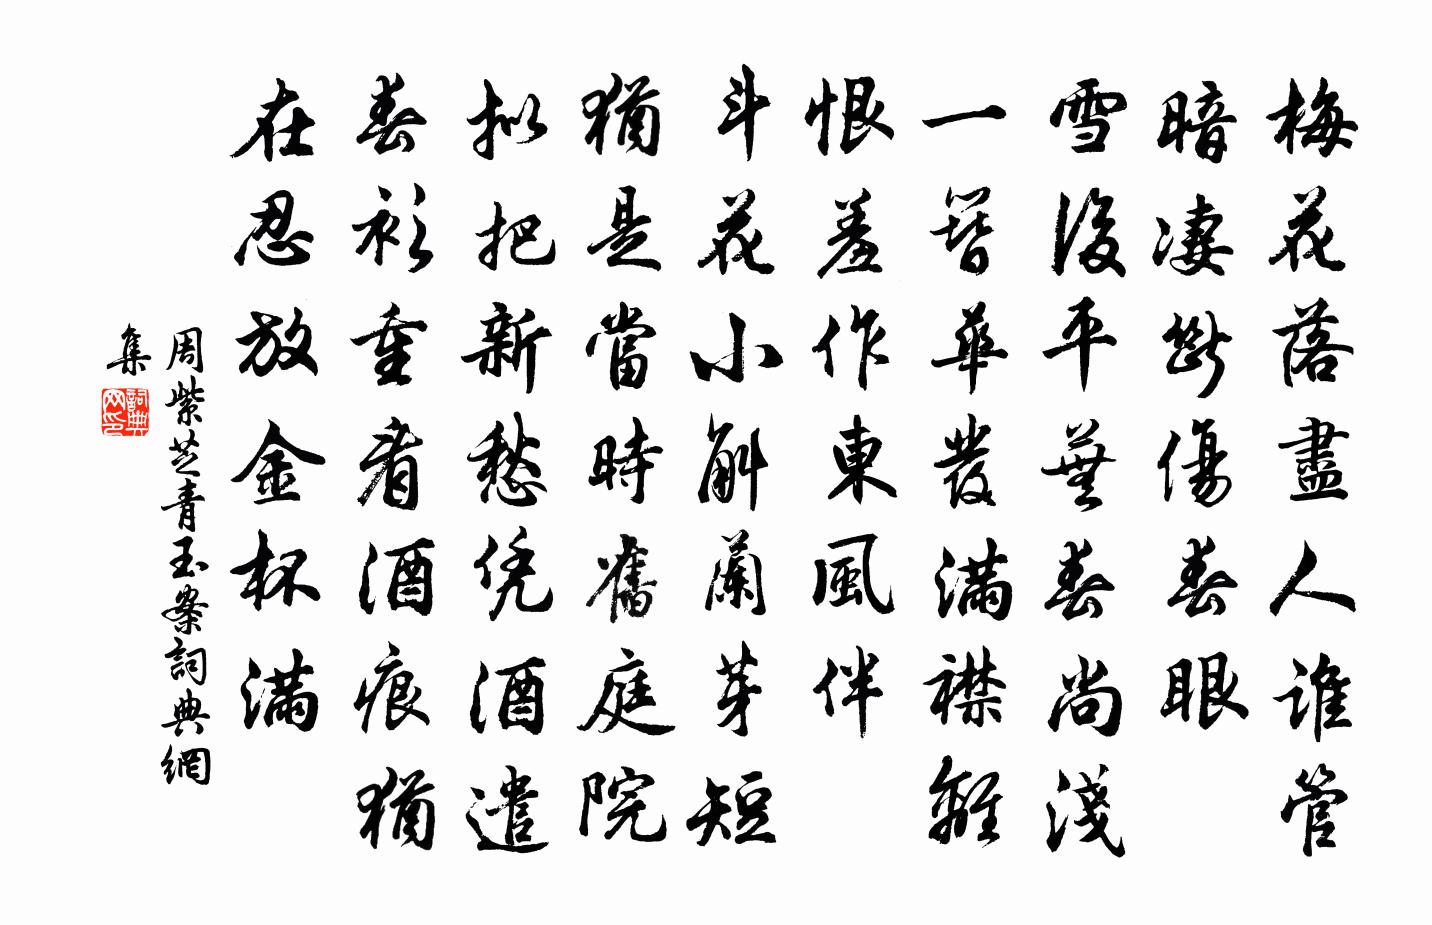 梅花落盡人誰管
暗凄斷傷春眼
雪後平蕪春尚淺
一簪華髮滿襟離
恨羞作東風伴
斗花小斛蘭芽短
猶是當時舊庭院
拟把新愁凭酒遣
春衫重看酒痕猶
在忍放金杯滿
周紫芝青玉案詞典網
集
詞典
网印